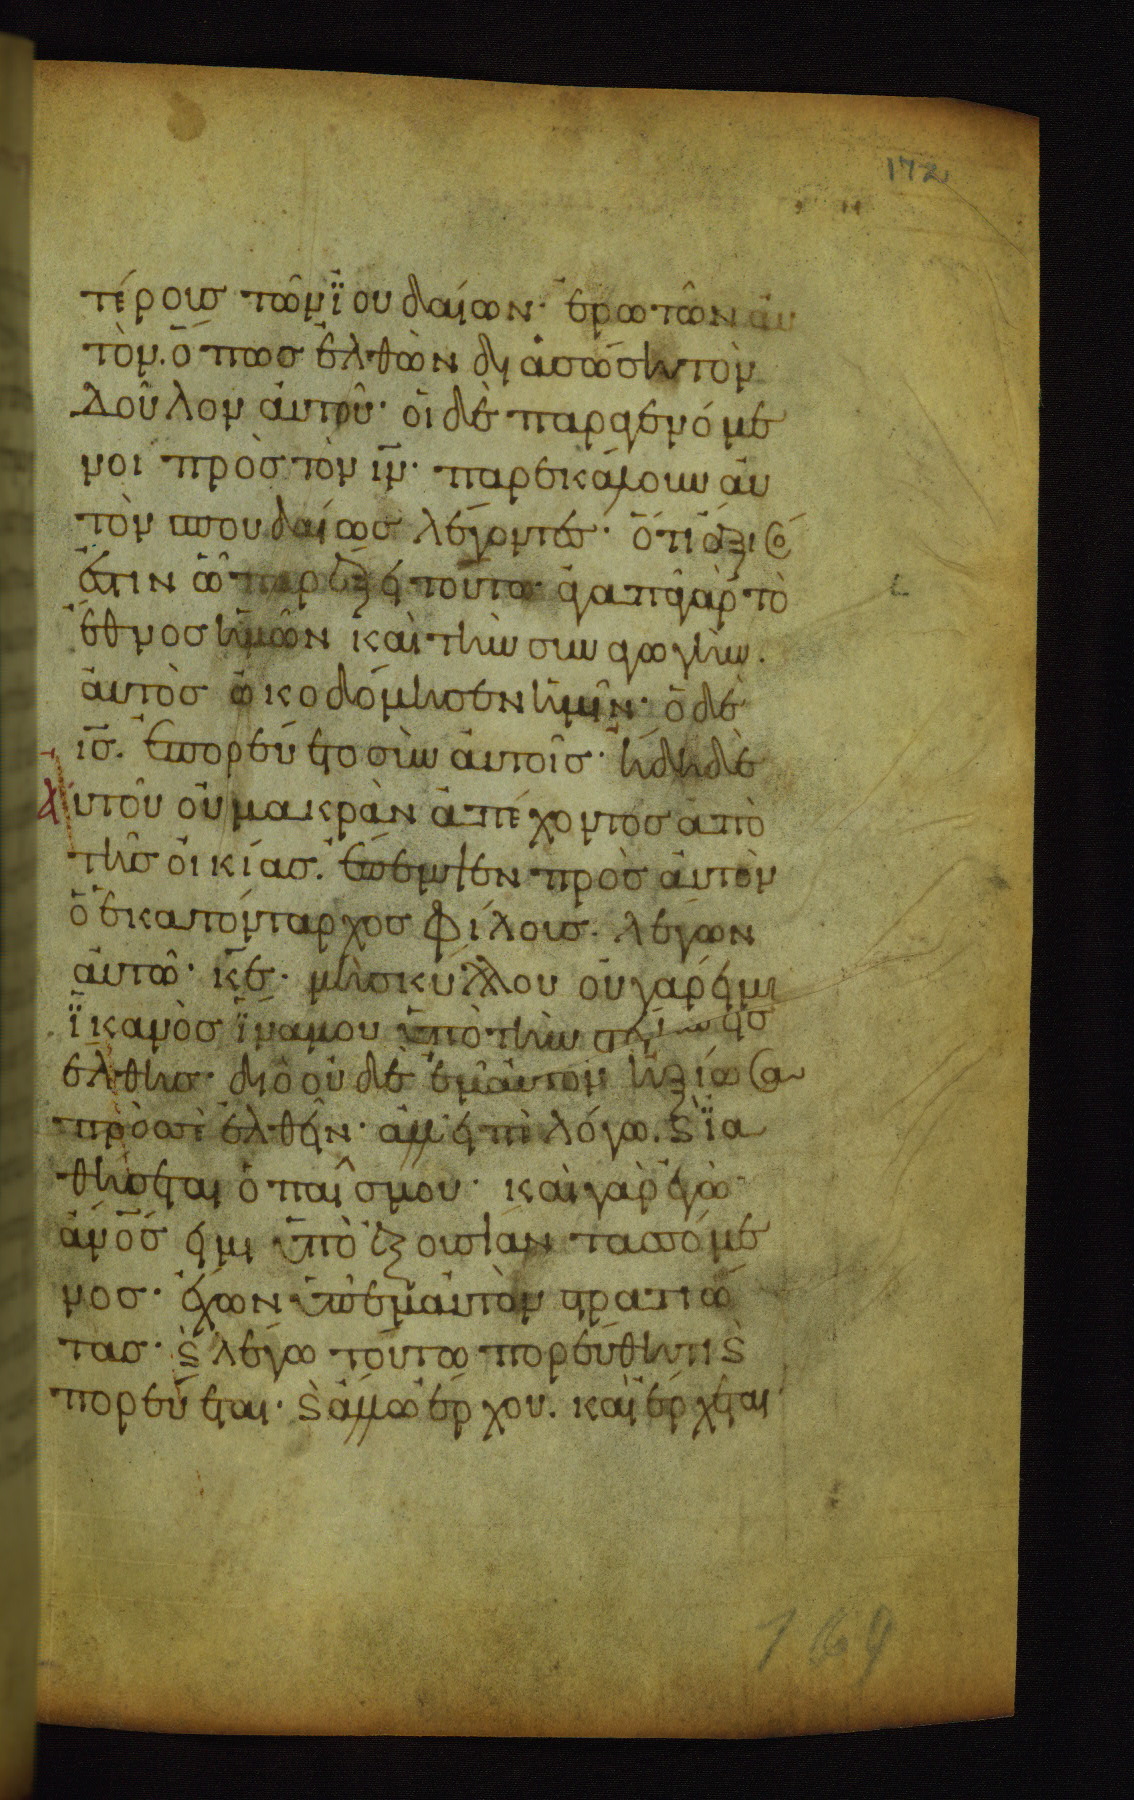 172
τέρους τῶν ϊουδαίων· ἐρωτῶν ἀυ
τὸν. ὅπως ἐλθὼν διἀσώση τὸν
δοῦλον ἀυτοῦ· οἱ δὲ παραγενόμε
νοι πρὸς τὸν ιν̄· παρεκάλουν ἀυ
τὸν σπουδαίως λέγοντες· ὅτι ἄξιός
ἐστιν ὧ παρέξει τοῦτο· ἀγαπᾶ γὰρ τὸ
ἔθνος ἡμῶν καὶ τὴν συναγωγὴν.
ἀυτὸς ὠκοδόμησεν ἡμῖν· ὁ δὲ
ις̄. ἐπορεύετο σὺν ἀυτοῖς· ἤδη δὲ
Ἀυτοῦ οὐ μακρὰν ἀπέχοντος ἀπὸ
τῆς οἰκίας. ἔπεμψεν πρὸς ἀυτὸν
ὁ ἑκατόνταρχος φίλους· λέγων
ἀυτῶ· κε̄· μὴ σκύλλου οὐ γάρ εἰμι
ϊκανὸς ϊνα μου ὑπὸ τὴν στέγην εἰσ
έλθης· διὸ οὐδὲ ἐμἀυτὸν ἠξίωσα
πρὸς σὲ ἐλθεῖν· ἀλλ' εἰπὲ λόγω. ϗ ϊα
θήσεται ὁ παῖς μου· καὶ γὰρ ἐγὼ
ἀνός εἰμι ὑπὸ ἐξουσίαν τασσόμε
νος· ἔχων ὑπ' ἐμἀυτὸν στρατιώ
τας· ϗ λέγω τούτω πορεύθητι ϗ
πορεύεται· ϗ ἄλλω ἔρχου. καὶ ἔρχεται
169